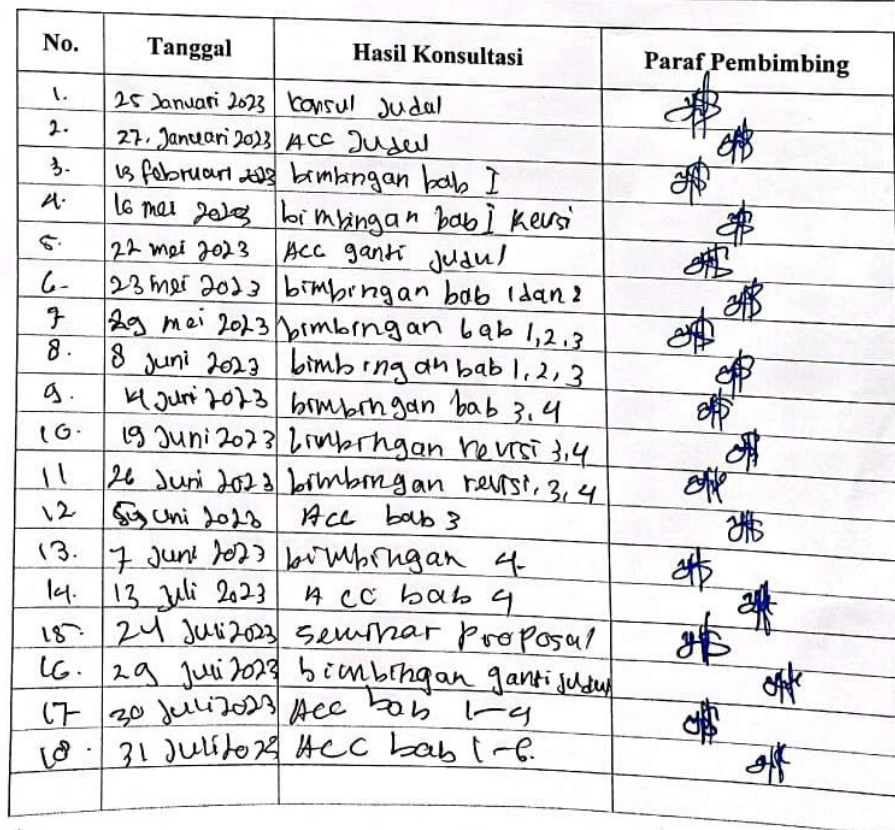 No. Tanggal Hasil Konsultasi Paraf Pembimbing
1. 25 Januari 2023 konsul Judul
2. 27. Januari 2023 ACC Judul
3. 13 februari 2023 bimbingan bab I
4. 16 mei 2023 bimbingan bab I
5. 22 mei 2023 ACC ganti judul
6. 23 mei 2023 bimbingan bab 1 dan 2
7 29 mei 2023 bimbingan bab 1,2,3
8. 8 Juni 2023 bimbingan bab 1,2,3
9. 14 Juni 2023 bimbingan bab 3,4
10. 19 Juni 2023 bimbingan revisi 3,4
11 26 Juni 2023 bimbingan revisi, 3,4
12 2023 ACC bab 3
13. 7 Juni 2023 bimbingan 4.
14. 13 Juli 2023 ACC bab 4
15. 24 Juli 2023 seminar Proposal
16. 29 Juli 2023 bimbingan ganti judul
17 30 Juli 2023 ACC bab 1-4
18. 31 Juli 2023 ACC bab 1-6.